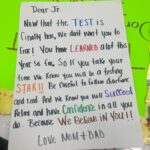 Dear Jr.
Now that the TEST is
Finally here, we don't want you to
fear! You have LEARNED a lot this
year so far, so if you take your
time we know you will be a testing
STAR!! Be careful to follow directions
and read and we know you will Succeed
Relax and have Confidence in all you
do. Because We Believe in You!!
Love Mom & Dad